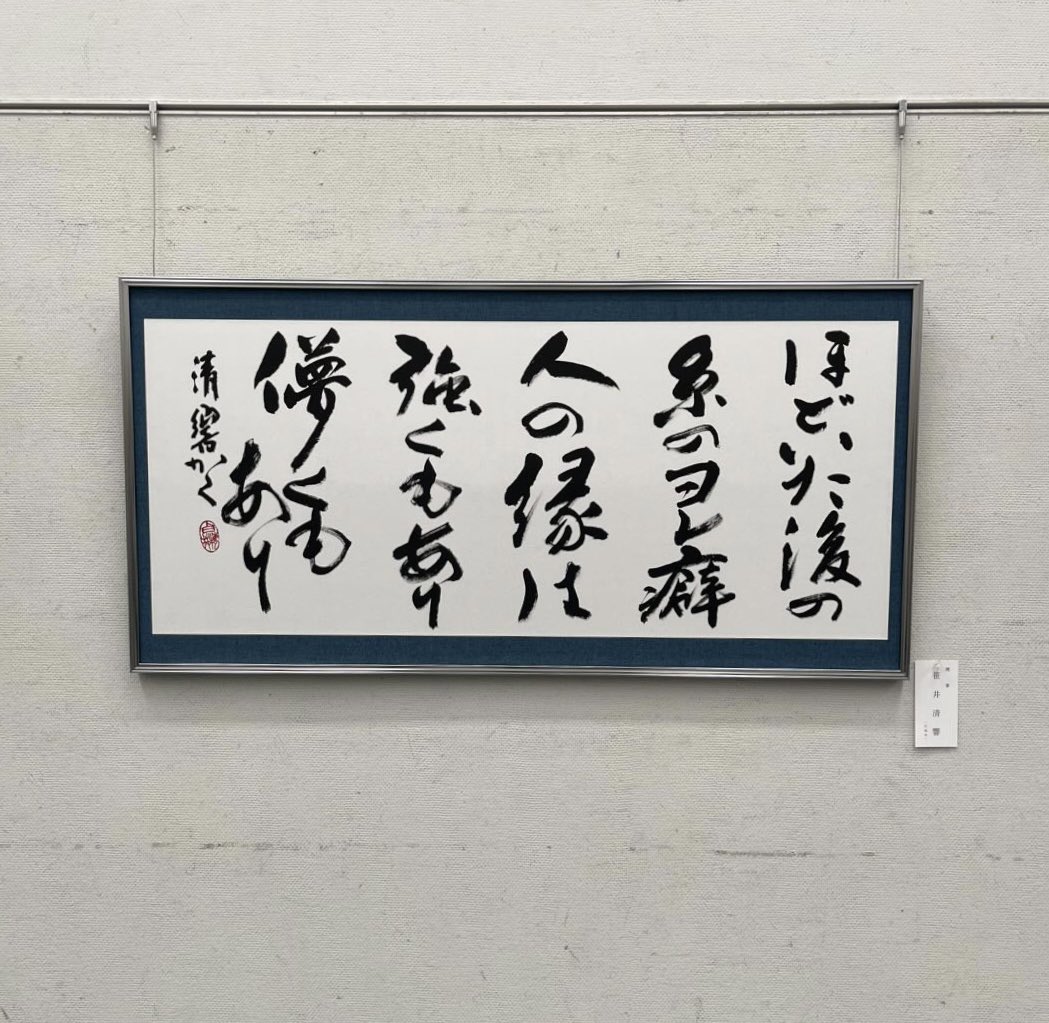 ほどいた後の
糸のヨレ癖
人の縁は
強くもあり
儚くも
あり
清響かく
笹井清響